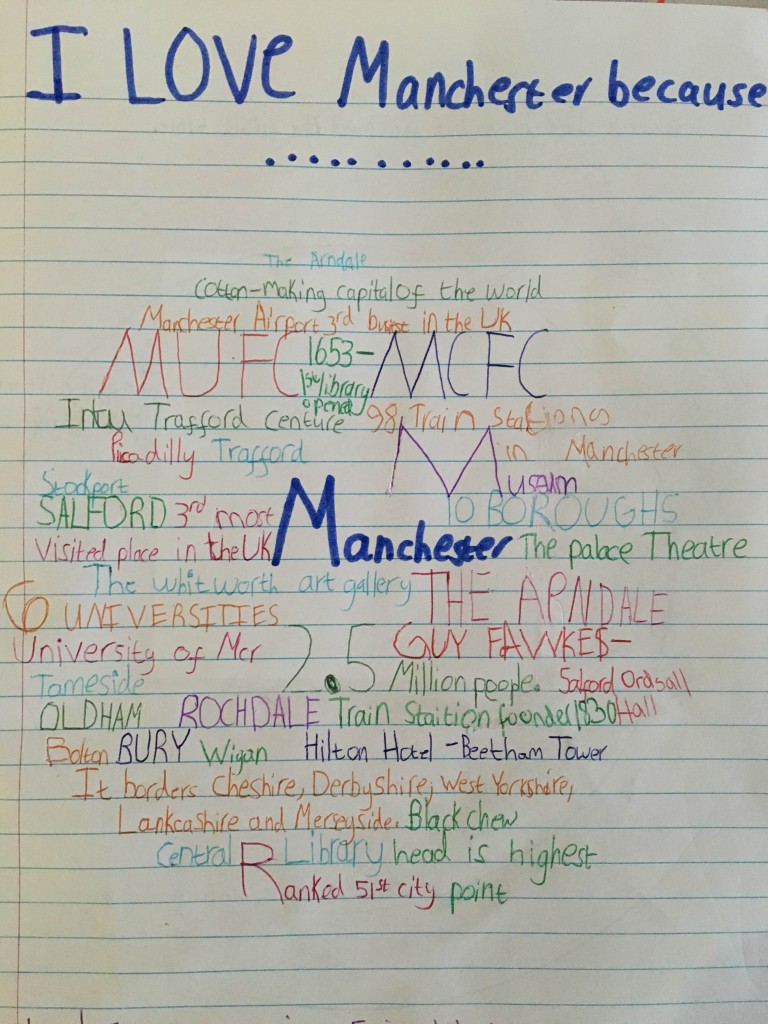 I LOVE Manchester because
...........
The Arndale
Cotton-Making capital of the world
Manchester Airport 3rd busest in the UK
MUFC 1653- MCFC
1st library
opened
Intu Trafford centure 98 Train stations
Picadilly Trafford M in Manchester
Stockport useum
SALFORD 3rd most 10 BOROUGHS
Visited place in the UK Manchester The palace Theatre
The whitworth art gallery THE ARNDALE
6 UNIVERSITIES
University of Mcr 2.5 GUY FAWKES-
Tameside Million people. Salford Ordsall
OLDHAM ROCHDALE Train Staition founded 1830 Hall
Bolton BURY Wigan Hilton Hotel -Beetham Tower
It borders Cheshire, Derbyshire, West Yorkshire,
Lankcashire and Merseyside. Black chew
Central Library head is highest
Ranked 51st city point